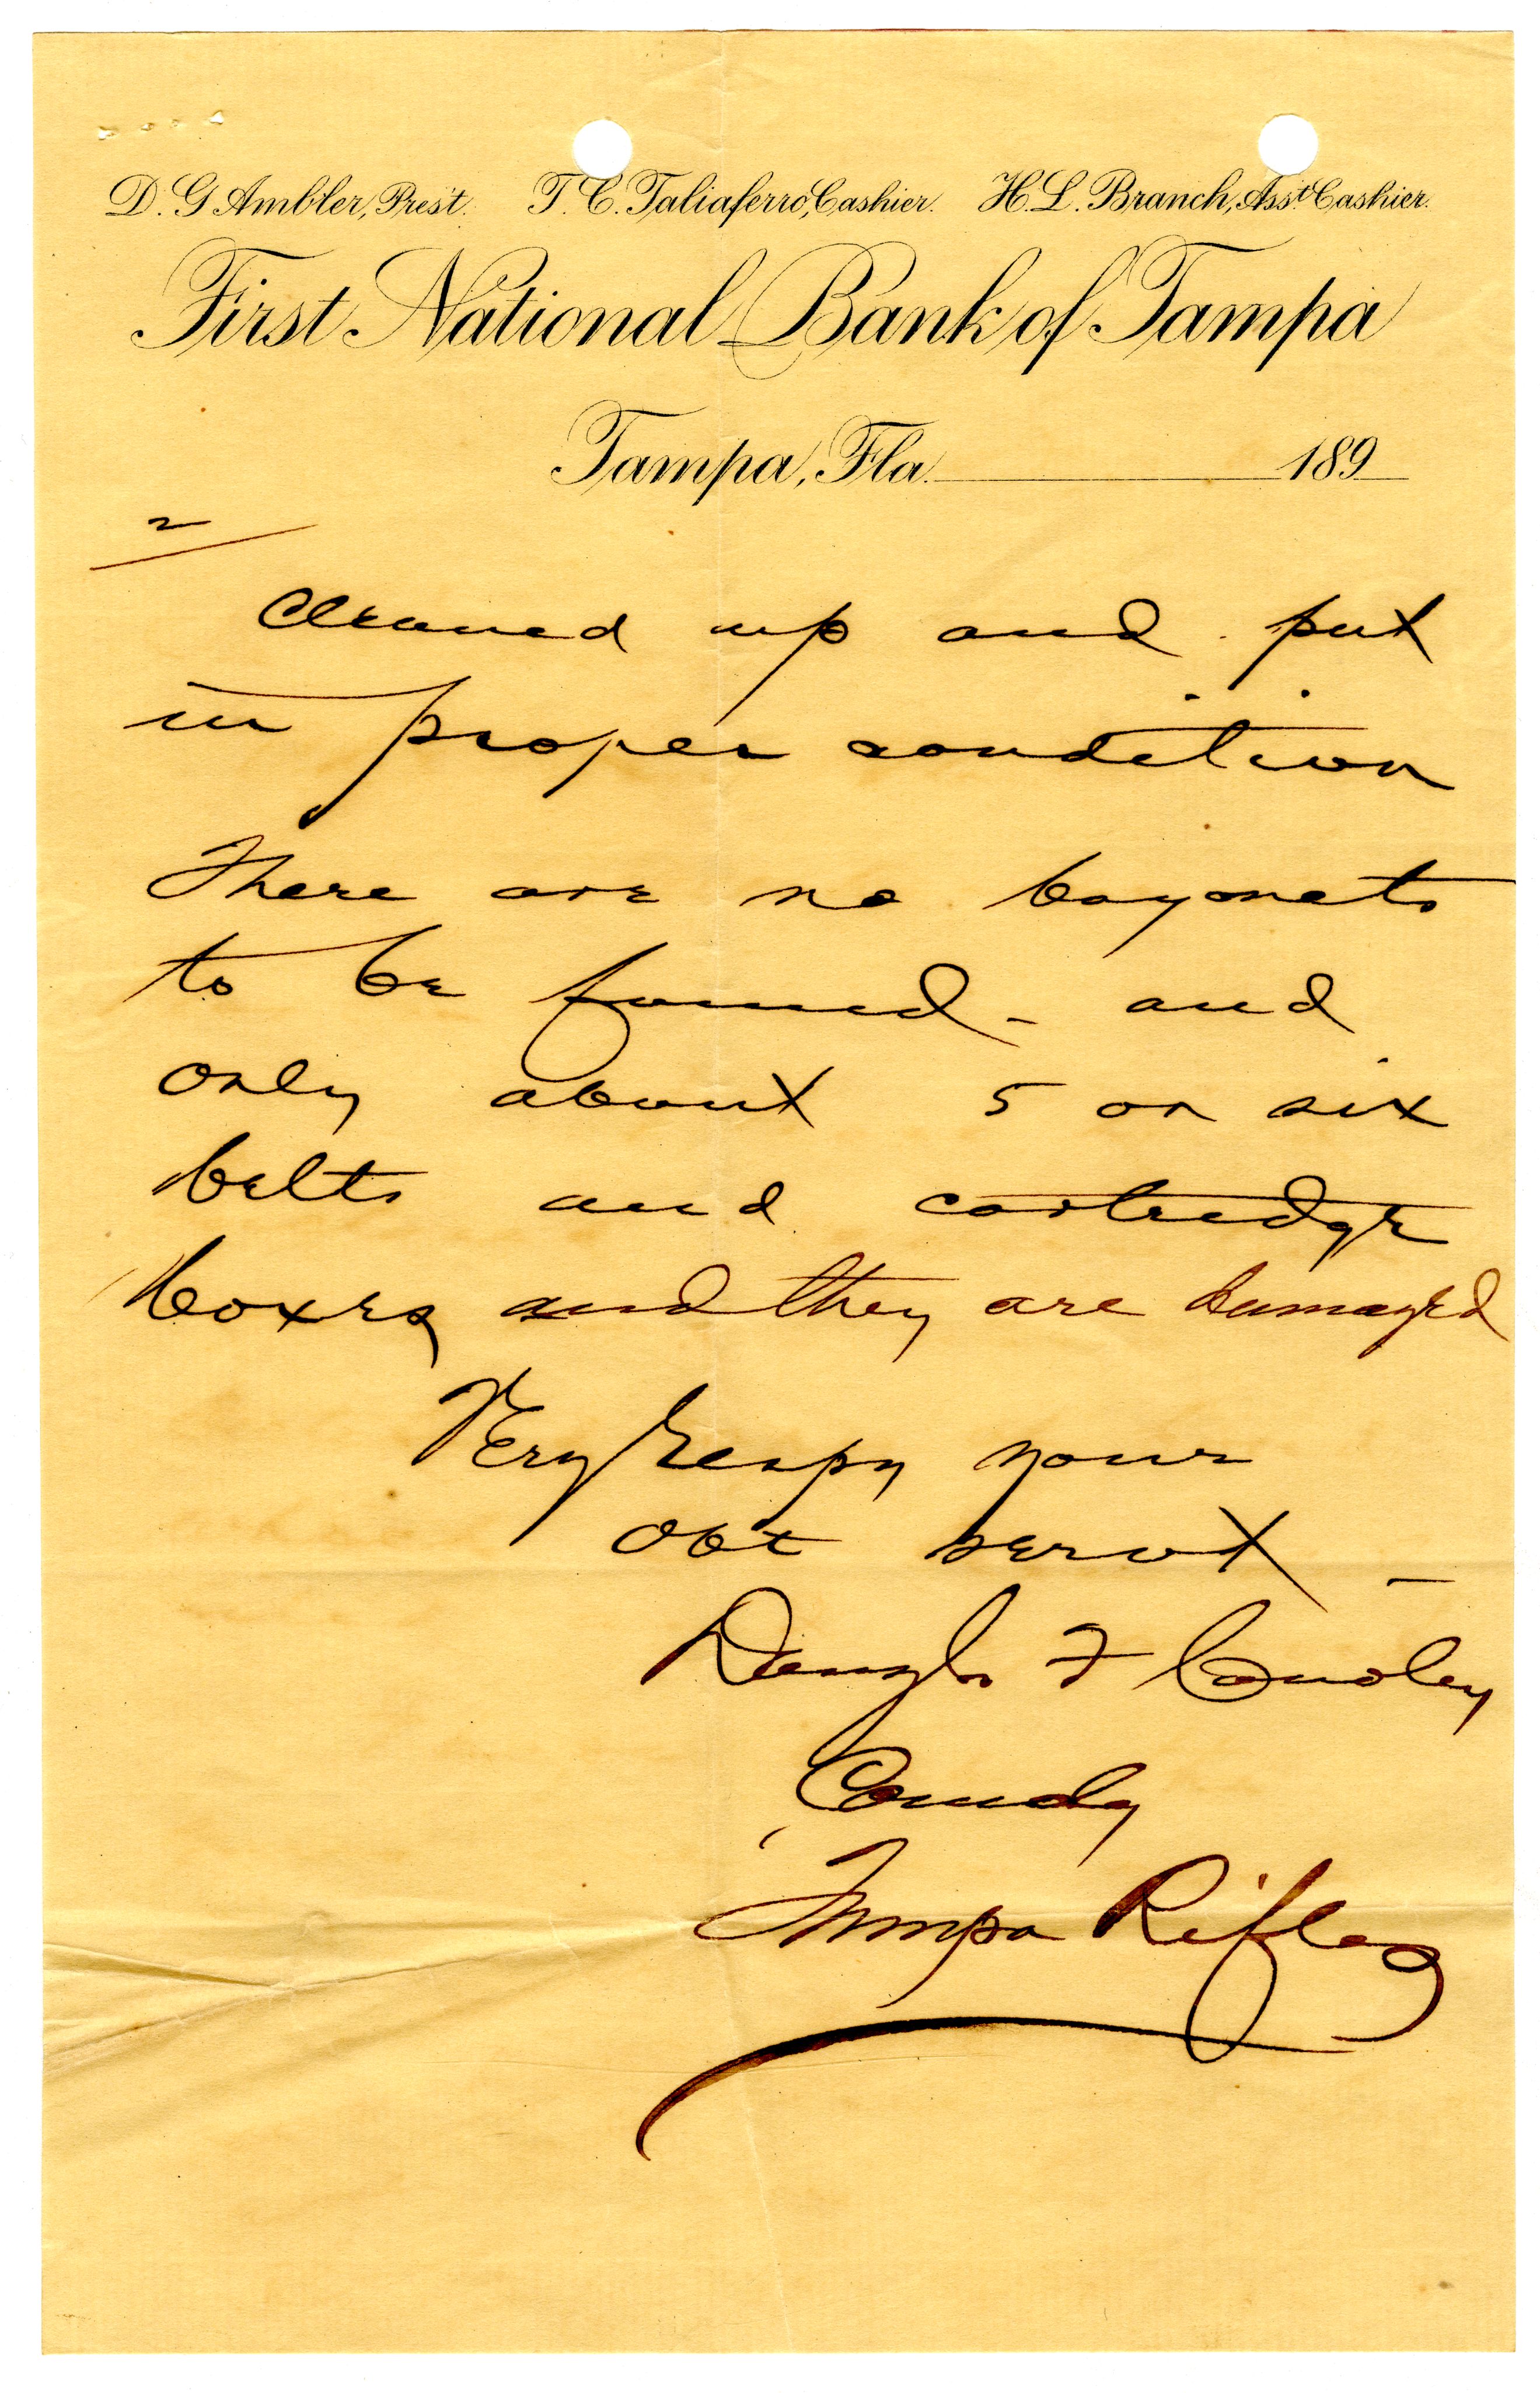 D. G Ambler, Prest. T. C. Taliaferro, Cashier. H. L. Branch, Asst Cashier.
First National Bank of Tampa
Tampa, Fla. 189
2
Cleaned up and put
in proper condition
There are no bayonets
to be found - and
only about 5 or six
belts and cartridge
boxes, and they are damaged
Very Respy your
obt servt -
F Conoley
Comdg
Tampa Rifles